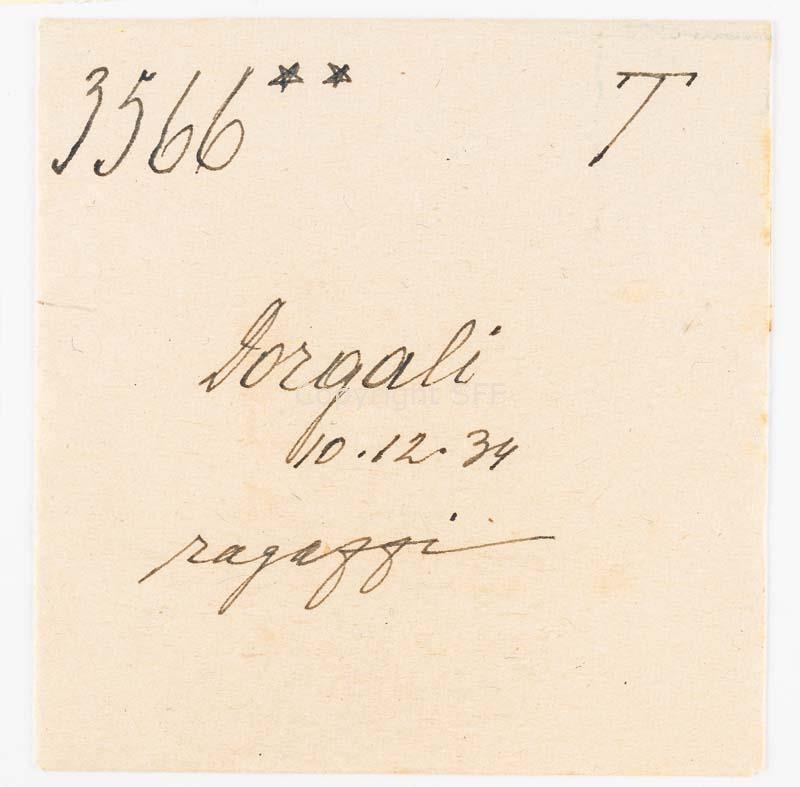 3566** T
Dorgali
10.12.34
ragazzi
Copyright SFF